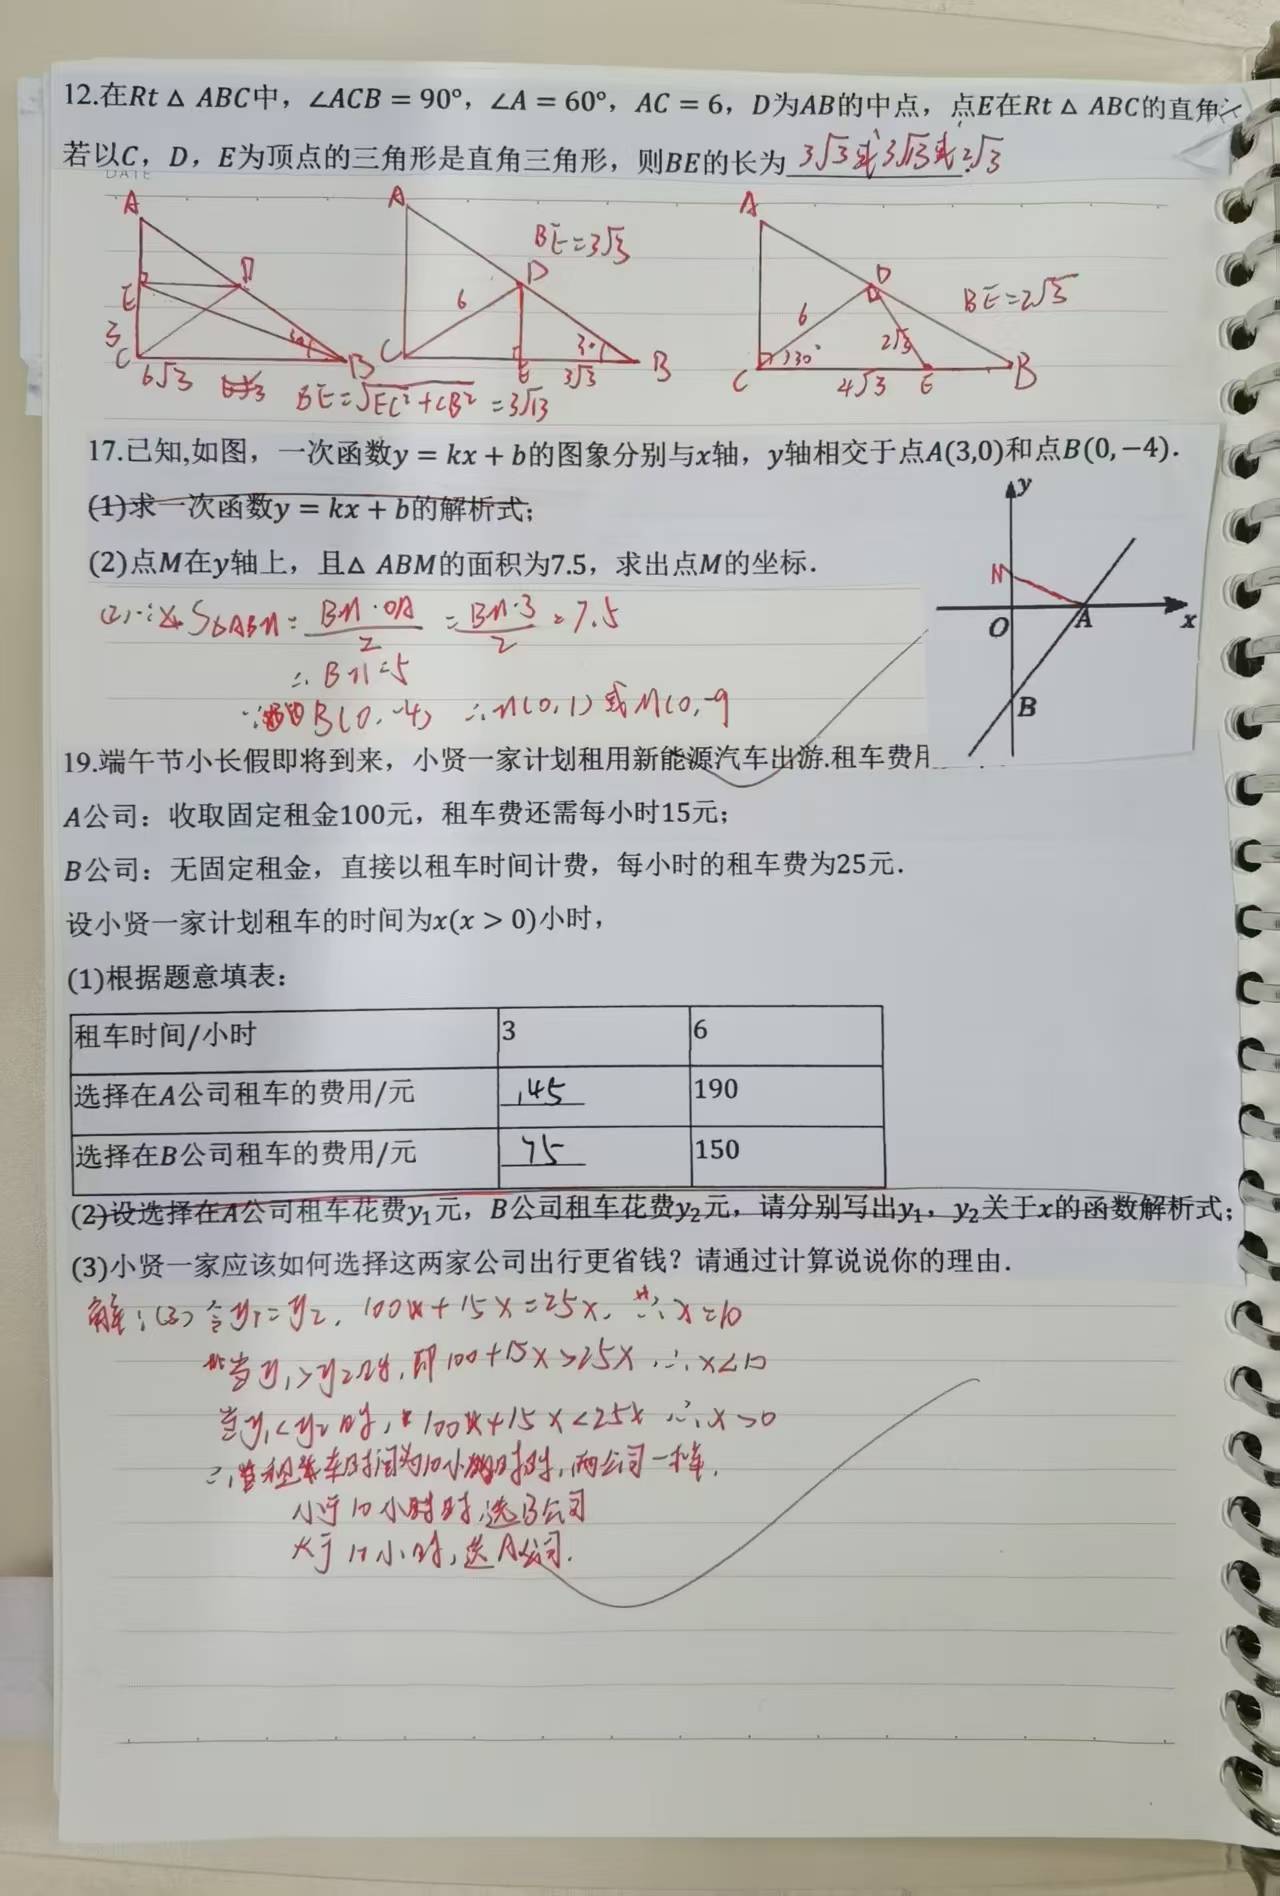 12.在Rt △ ABC中，∠ACB = 90°，∠A = 60°，AC = 6，D为AB的中点，点E在Rt △ ABC的直角
若以C，D，E为顶点的三角形是直角三角形，则BE的长为 3√3或3√13或2√3
DATE
A
D
E
3
C
6√3
30°
B
BE=√EC²+CB² =3√13
A
BE=3√3
D
6
C
E
3√3
30°
B
A
D
BE=2√3
6
2√3
30°
C
4√3
E
B
17.已知,如图，一次函数y = kx + b的图象分别与x轴，y轴相交于点A(3,0)和点B(0,−4).
(1)求一次函数y = kx + b的解析式；
(2)点M在y轴上，且△ ABM的面积为7.5，求出点M的坐标.
y
M
O
A
x
B
(2)∵S△ABM = BM·OA/2 = BM·3/2 = 7.5
∴BM=5
∵B(0,-4) ∴M(0,1)或M(0,-9
19.端午节小长假即将到来，小贤一家计划租用新能源汽车出游.租车费用
A公司：收取固定租金100元，租车费还需每小时15元；
B公司：无固定租金，直接以租车时间计费，每小时的租车费为25元.
设小贤一家计划租车的时间为x(x > 0)小时，
(1)根据题意填表：
租车时间/小时 3 6
选择在A公司租车的费用/元 145 190
选择在B公司租车的费用/元 75 150
(2)设选择在A公司租车花费y₁元，B公司租车花费y₂元，请分别写出y₁，y₂关于x的函数解析式；
(3)小贤一家应该如何选择这两家公司出行更省钱？请通过计算说说你的理由.
解：(3)令y₁=y₂，100+15x=25x，∴x=10
当y₁>y₂时，即100+15x>25x ∴x<10
当y₁<y₂时，100+15x<25x ∴x>0
∴当租车时间为10小时时，两公司一样，
小于10小时时，选B公司
大于10小时，选A公司.